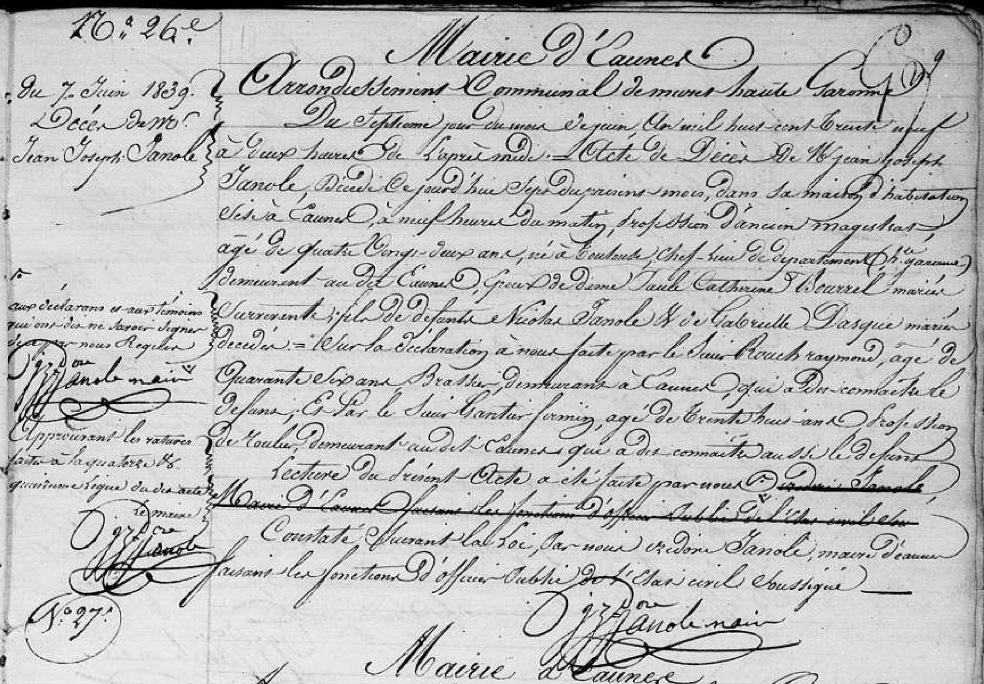 N.º 26.e
Mairie d'Eaunes
du 7. Juin 1839.
Décès de Mr.
Jean Joseph Janole
Arrondissement Communal de muret haute Garonne
Du Septieme jour du mois de juin, An mil huit cent trente neuf
à deux heures de l'après midi = Acte de Décès de Mr jean joseph
Janole, Décédé Ce jourd'hui Sept du présent mois, dans sa maison d'habitation
Sise à Eaunes, à neuf heures du matin, profession d'ancien magistrat
âgé de quatre vingt deux ans, né à Toulouse, Chef-lieu de département (hte. garonne)
demeurant au dit Eaunes, Epoux de dame Paule Catherine Bourrel mariés
Survivente; fils de defunts Nicolas Janole & de Gabrielle Dasque mariés
décédés = Sur la déclaration à nous faite par le Sieur Rouch raymond, âgé de
Quarante Six ans Brassier, demeurant à Eaunes, qui a dit connaitre le
defunt; Et Par le Sieur Gantier firmin, agé de Trente huit ans Profession
de roulier, demeurant au dit Eaunes, qui a dit connaitre aussi le defunt
Lecture du Présent Acte a été faite par nous izidore Janole,
Maire d'Eaunes faisant les fonctions d'officier Public de l'état civil
Constaté Suivant la Loi, Par nous izidore Janole, maire d'eaunes
faisant les fonctions d'officier Public de l'état civil Soussigné
izidore
Janole maire
aux déclarans et aux témoins
qui ont dit ne Savoir Signer
de ce par nous Requis
izidore
Janole maire
Approuvant les ratures
faites à la quatorze &
quinzieme ligne du dit acte
Le maire
izidore
Janole
N.º 27.e
Mairie d'Eaunes